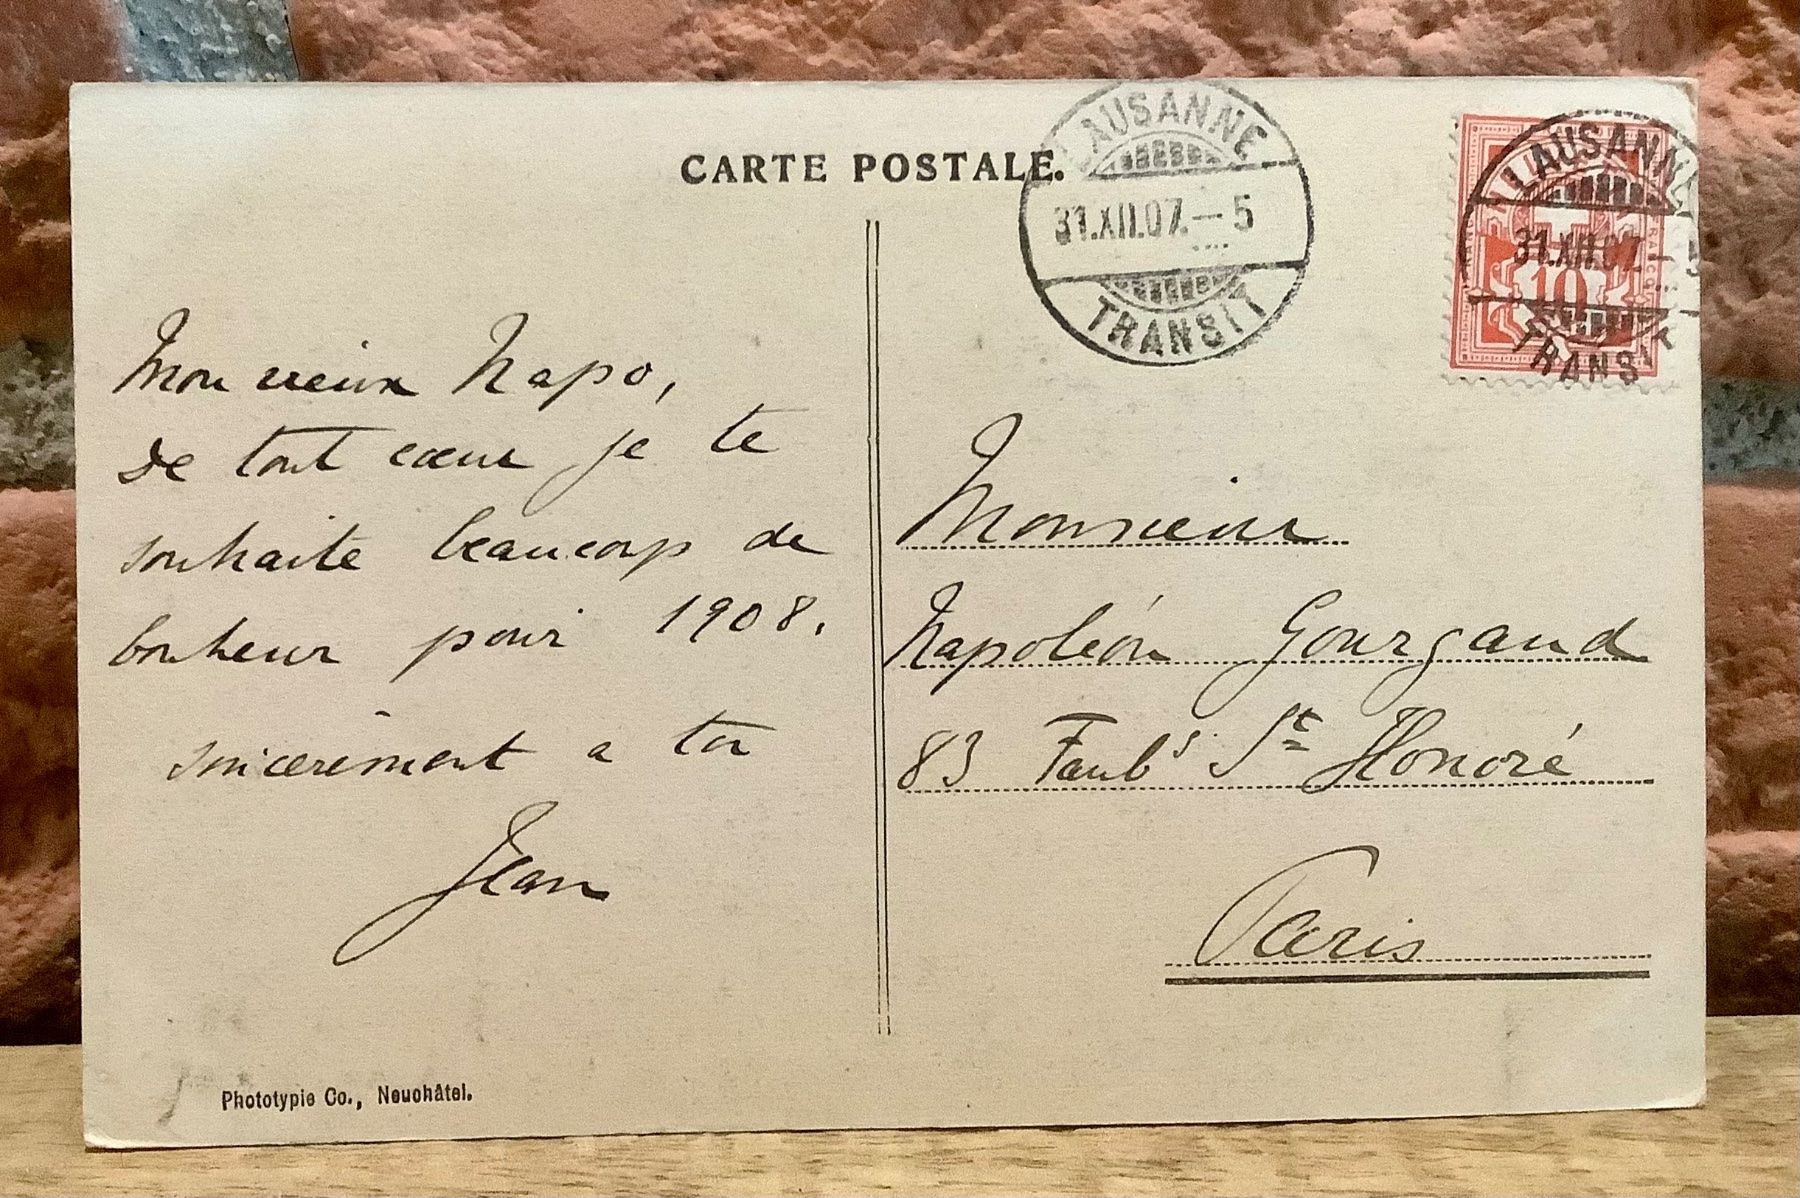 CARTE POSTALE.
LAUSANNE
31.XII.07.–5
TRANSIT
LAUSANNE
31.XII.07.–5
TRANSIT
10
Mon vieux Napo,
de tout cœur je te
souhaite beaucoup de
bonheur pour 1908.
sincerement a toi
Jean
Monsieur
Napoléon Gourgaud
83 Faubg St Honoré
Paris
Phototypie Co., Neuchâtel.